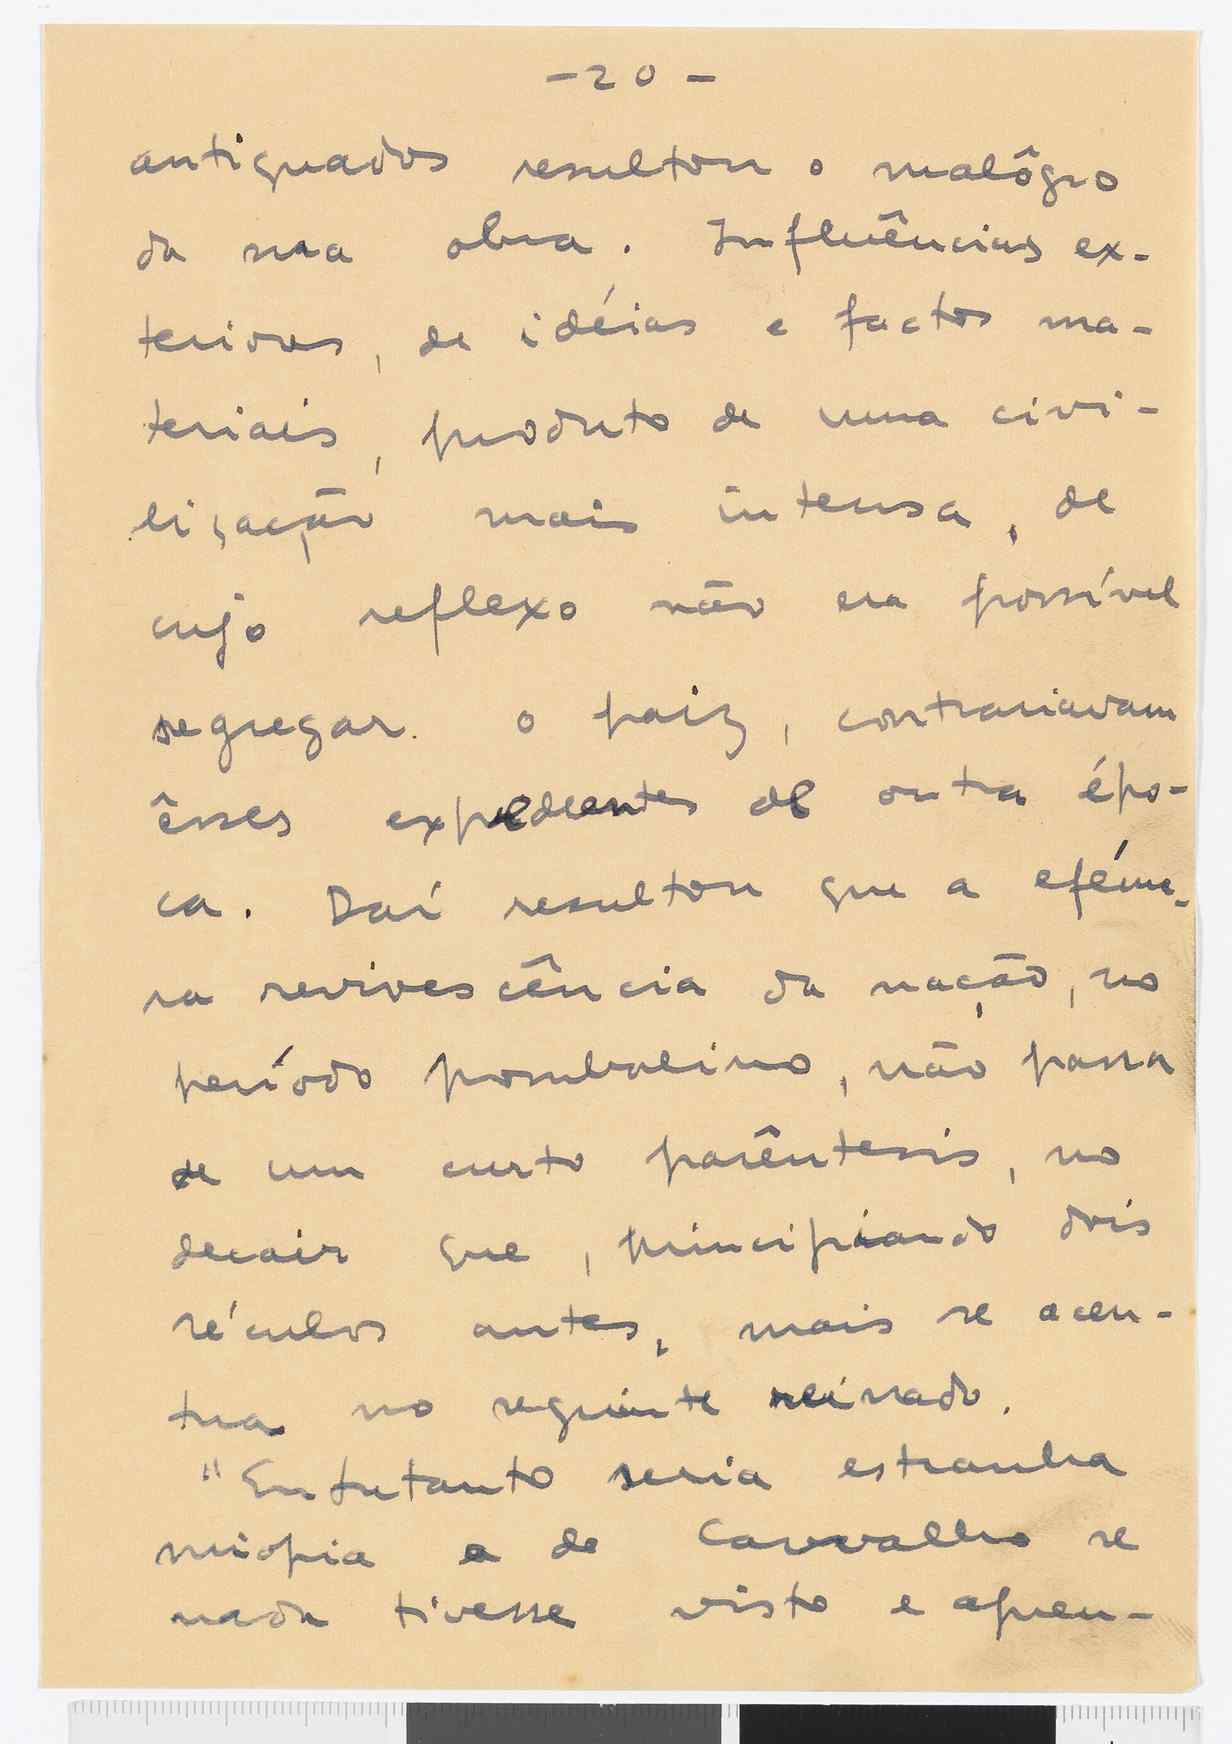 - 20 -
antiquados resultou o malôgro
da sua obra. Influências ex-
teriores, de idéias e factos ma-
teriais, produto de uma civi-
lização mais intensa, de
cujo reflexo não era possível
segregar o paiz, contrariavam
êsses expedientes de outra épo-
ca. Daí resultou que a efême-
ra revivescência da nação, no
período pombalino, não passa
de um curto parêntesis, no
decair que, principiando dois
séculos antes, mais se acen-
tua no seguinte reinado.
"Entretanto seria estranha
miopia a de Carvalho se
nada tivesse visto e apren-